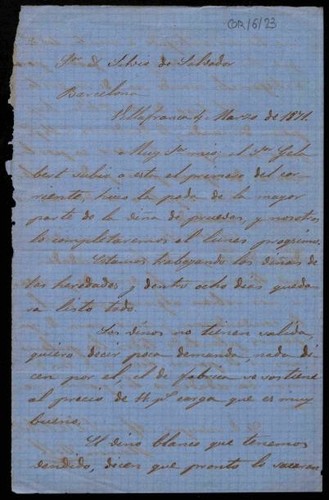 COR/6/23
Sr. D. Silvio de Salvador
Barcelona
Villafranca 4 Marzo de 1871.
Muy Sr mio, el Sr Gela
bert subio a esta el primero del cor
riente, hizo la poda de la mayor
parte de la viña de pruebas, y nosotros
lo completaremos el lunes proximo.
Estamos trabajando los viñas de
las heredades y dentro ocho dias queda
ra listo todo.
Los vinos no tienen valida,
quiero decir poca demanda, nada di
cen por el, el de fabrica se sostiene
al precio de 14 ps carga que es muy
bueno.
El vino blanco que tenemos
vendido, dicen que pronto lo sacaran